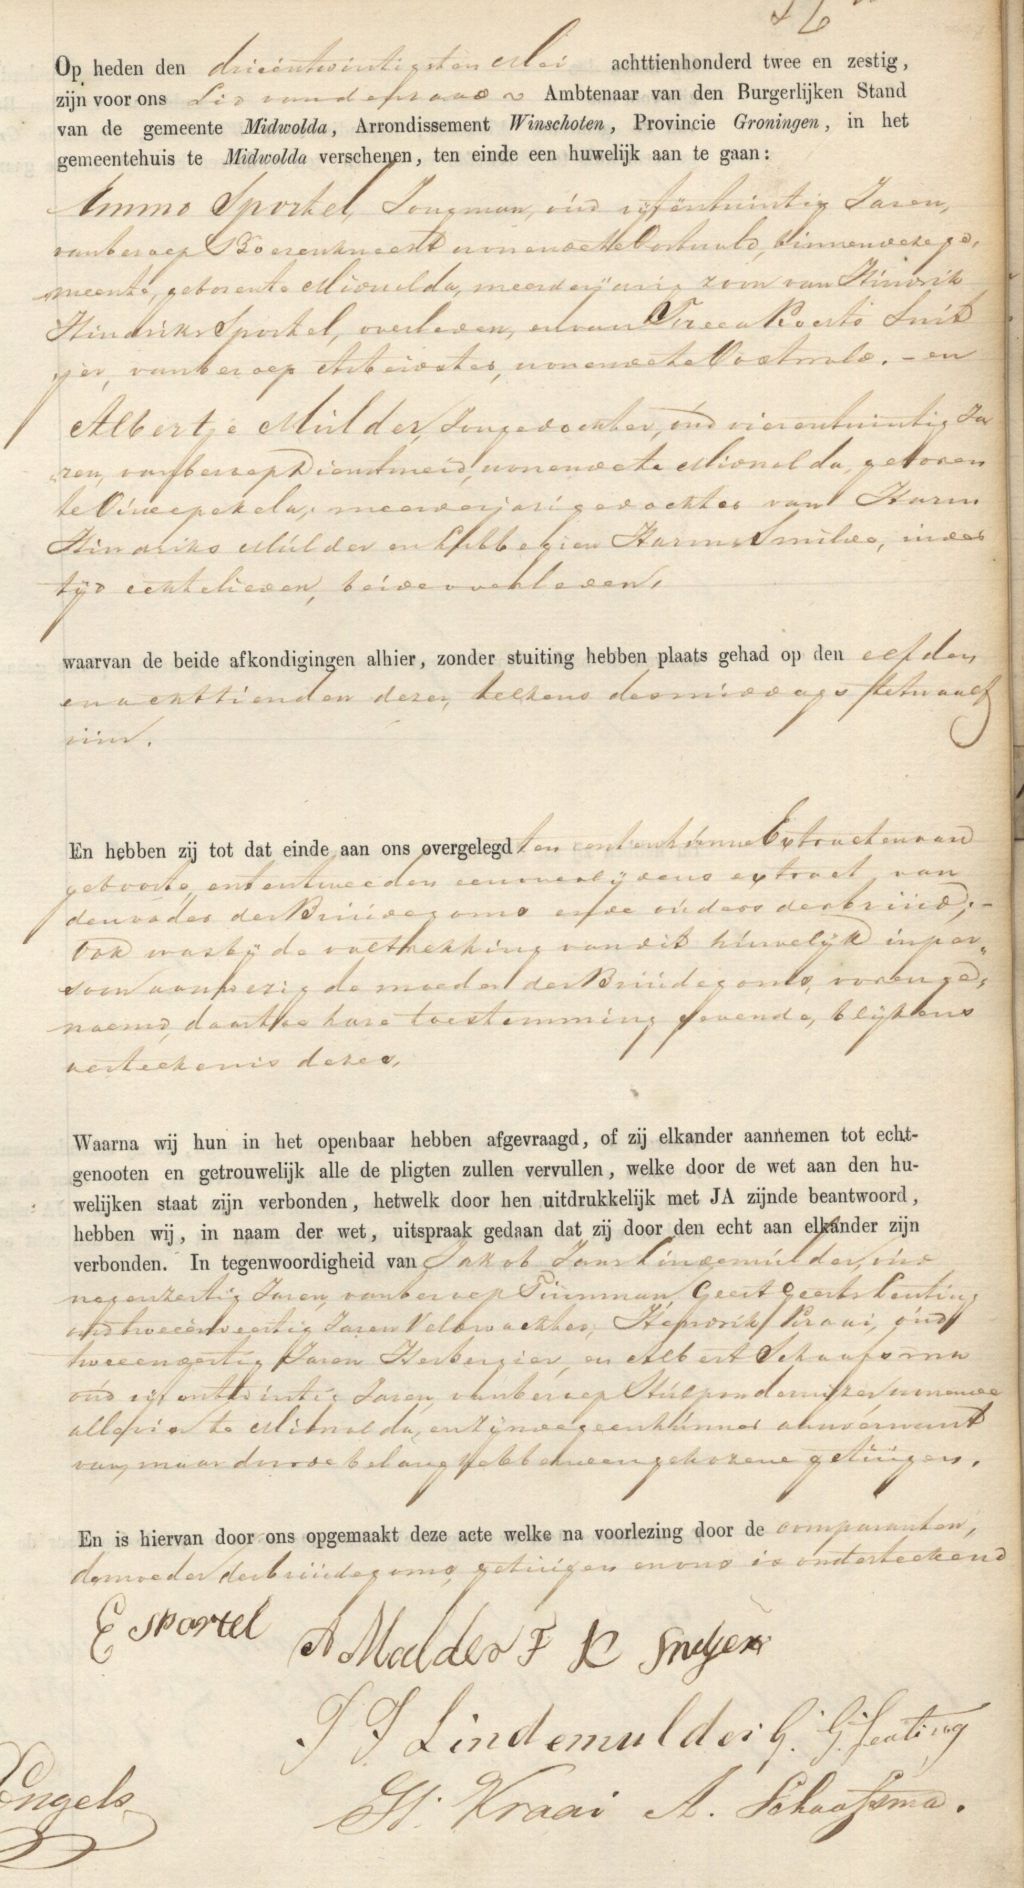 Op heden den drieëntwintigsten Mei achttienhonderd twee en zestig,
zijn voor ons Lid van den raad Ambtenaar van den Burgerlijken Stand
van de gemeente Midwolda, Arrondissement Winschoten, Provincie Groningen, in het
gemeentehuis te Midwolda verschenen, ten einde een huwelijk aan te gaan:
Emmo Sportel, Jongman, oud vijfentwintig Jaren,
van beroep Boerenknecht wonende te Oostwold, binnen deze ge-
meente, geboren te Midwolda, meerderjarige zoon van Hindrik
Hindriks Sportel, overleden, en van Roelfs Snit
jer, van beroep Arbeidster, wonende te Oostwold. - en
Albertje Mulder, Jongedochter, oud vierentwintig Ja
ren, van beroep Dienstmeid, wonende te Midwolda, geboren
te Nieuwe Pekela, meerderjarige dochter van Harm
Hindriks Mulder en Lubbegien Harms Smilde, in der
tijd echtelieden, beide overleden,
waarvan de beide afkondigingen alhier, zonder stuiting hebben plaats gehad op den elfden
en achttienden dezer, telkens des middags te twaalf
uur.
En hebben zij tot dat einde aan ons overgelegd ten eersten hunne Extracten van
geboorte, en ten tweeden een overlijdens extract van
den vader des Bruidegoms en de ouders der bruid; -
Ook was bij de voltrekking van dit huwelijk in per-
soon aanwezig de moeder des Bruidegoms, vooren ge-
noemd, daartoe hare toestemming gevende, blijkens
ondertekenis dezer.
Waarna wij hun in het openbaar hebben afgevraagd, of zij elkander aannemen tot echt-
genooten en getrouwelijk alle de pligten zullen vervullen, welke door de wet aan den hu-
welijken staat zijn verbonden, hetwelk door hen uitdrukkelijk met JA zijnde beantwoord,
hebben wij, in naam der wet, uitspraak gedaan dat zij door den echt aan elkander zijn
verbonden. In tegenwoordigheid van Jakob Jans Lindemulder, oud
negenzestig Jaren, van beroep Timmerman, Geert Geerts Leuting
oud tweeënveertig Jaren Veldwachter, Hendrik Kraai, oud
tweeenzestig Jaren Herbergier, en Albert Schaafsma
oud vijfentwintig Jaren, van beroep Hulponderwijzer wonende
alle vier te Midwolda, en zijnde geen hunner aanverwant
van, maar door de belanghebbenden gekozene getuigen.
En is hiervan door ons opgemaakt deze acte welke na voorlezing door de comparanten,
de moeder des bruidegoms, getuigen en ons is onderteekend
E Sportel A Mulder F R Snitjer
J J Lindemulder G. G. Leuting
Engels H. Kraai A. Schaafsma.